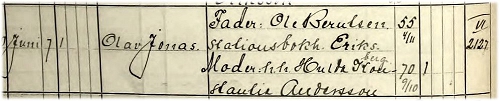 Fader: Ole Berntsen 55 4/11 VI
7 Juni 7 1 Olav Jonas. Stationsbokh. Eriks- 2127
berg
Moder: h.h. Hulda Kon- 70 1
9/10
stantia Andersson